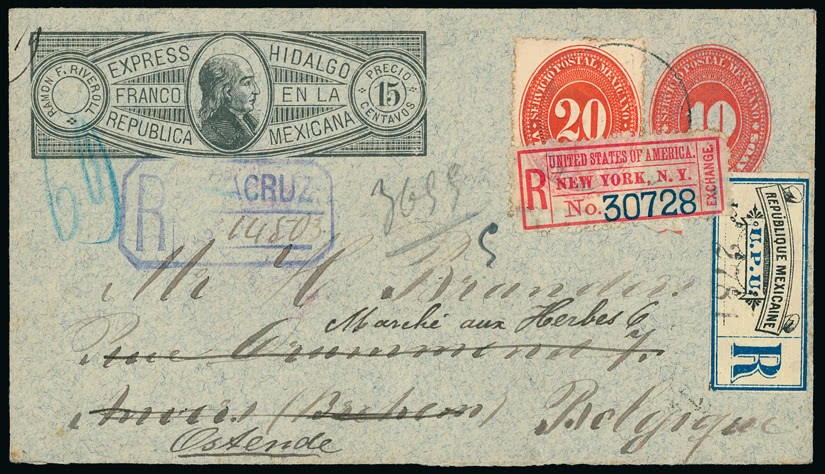 EXPRESS HIDALGO
RAMON F. RIVEROLL
FRANCO EN LA
REPUBLICA MEXICANA
PRECIO
15
CENTAVOS
SERVICIO POSTAL MEXICANO
20
SERVICIO POSTAL MEXICANO
10
UNITED STATES OF AMERICA.
R NEW YORK, N. Y.
No. 30728
EXCHANGE.
REPUBLIQUE MEXICAINE
U.P.U.
R
R ACRUZ.
14803
3685
5
Mr H. Brandes
Marché aux Herbes 6
Rue 7
Anvers (Berchem)
Belgique
Ostende